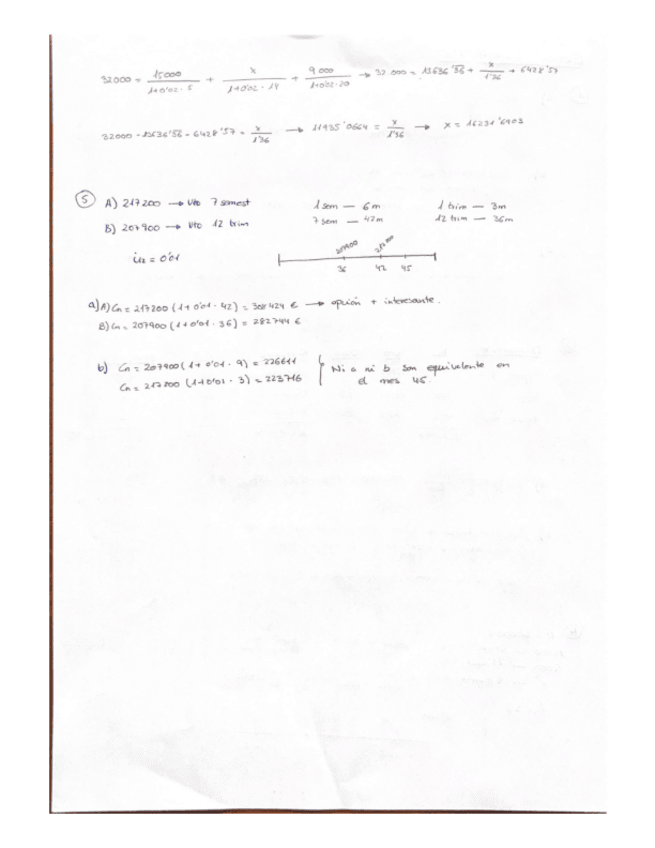 32000 = 15000/1+0'02·5 + x/1+0'02·18 + 9000/1+0'02·20 → 32.000 = 13636'36 + x/1'36 + 6428'57
32000 - 13636'36 - 6428'57 = x/1'36 → 11935'0664 = x/1'36 → x = 16231'6903
5 A) 217200 → Vto 7 semest 1 sem — 6m 1 trim — 3m
B) 207900 → Vto 12 trim 7 sem — 42m 12 trim — 36m
i12 = 0'01
207900
36 42 45
a) A) Cn = 217200 (1+0'01·42) = 308424 € → opción + interesante.
B) Cn = 207900 (1+0'01·36) = 282744 €
b) Cn = 207900 (1+0'01·9) = 226611
Cn = 217200 (1+0'01·3) = 223716
Ni a ni b son equivalente en
el mes 45.